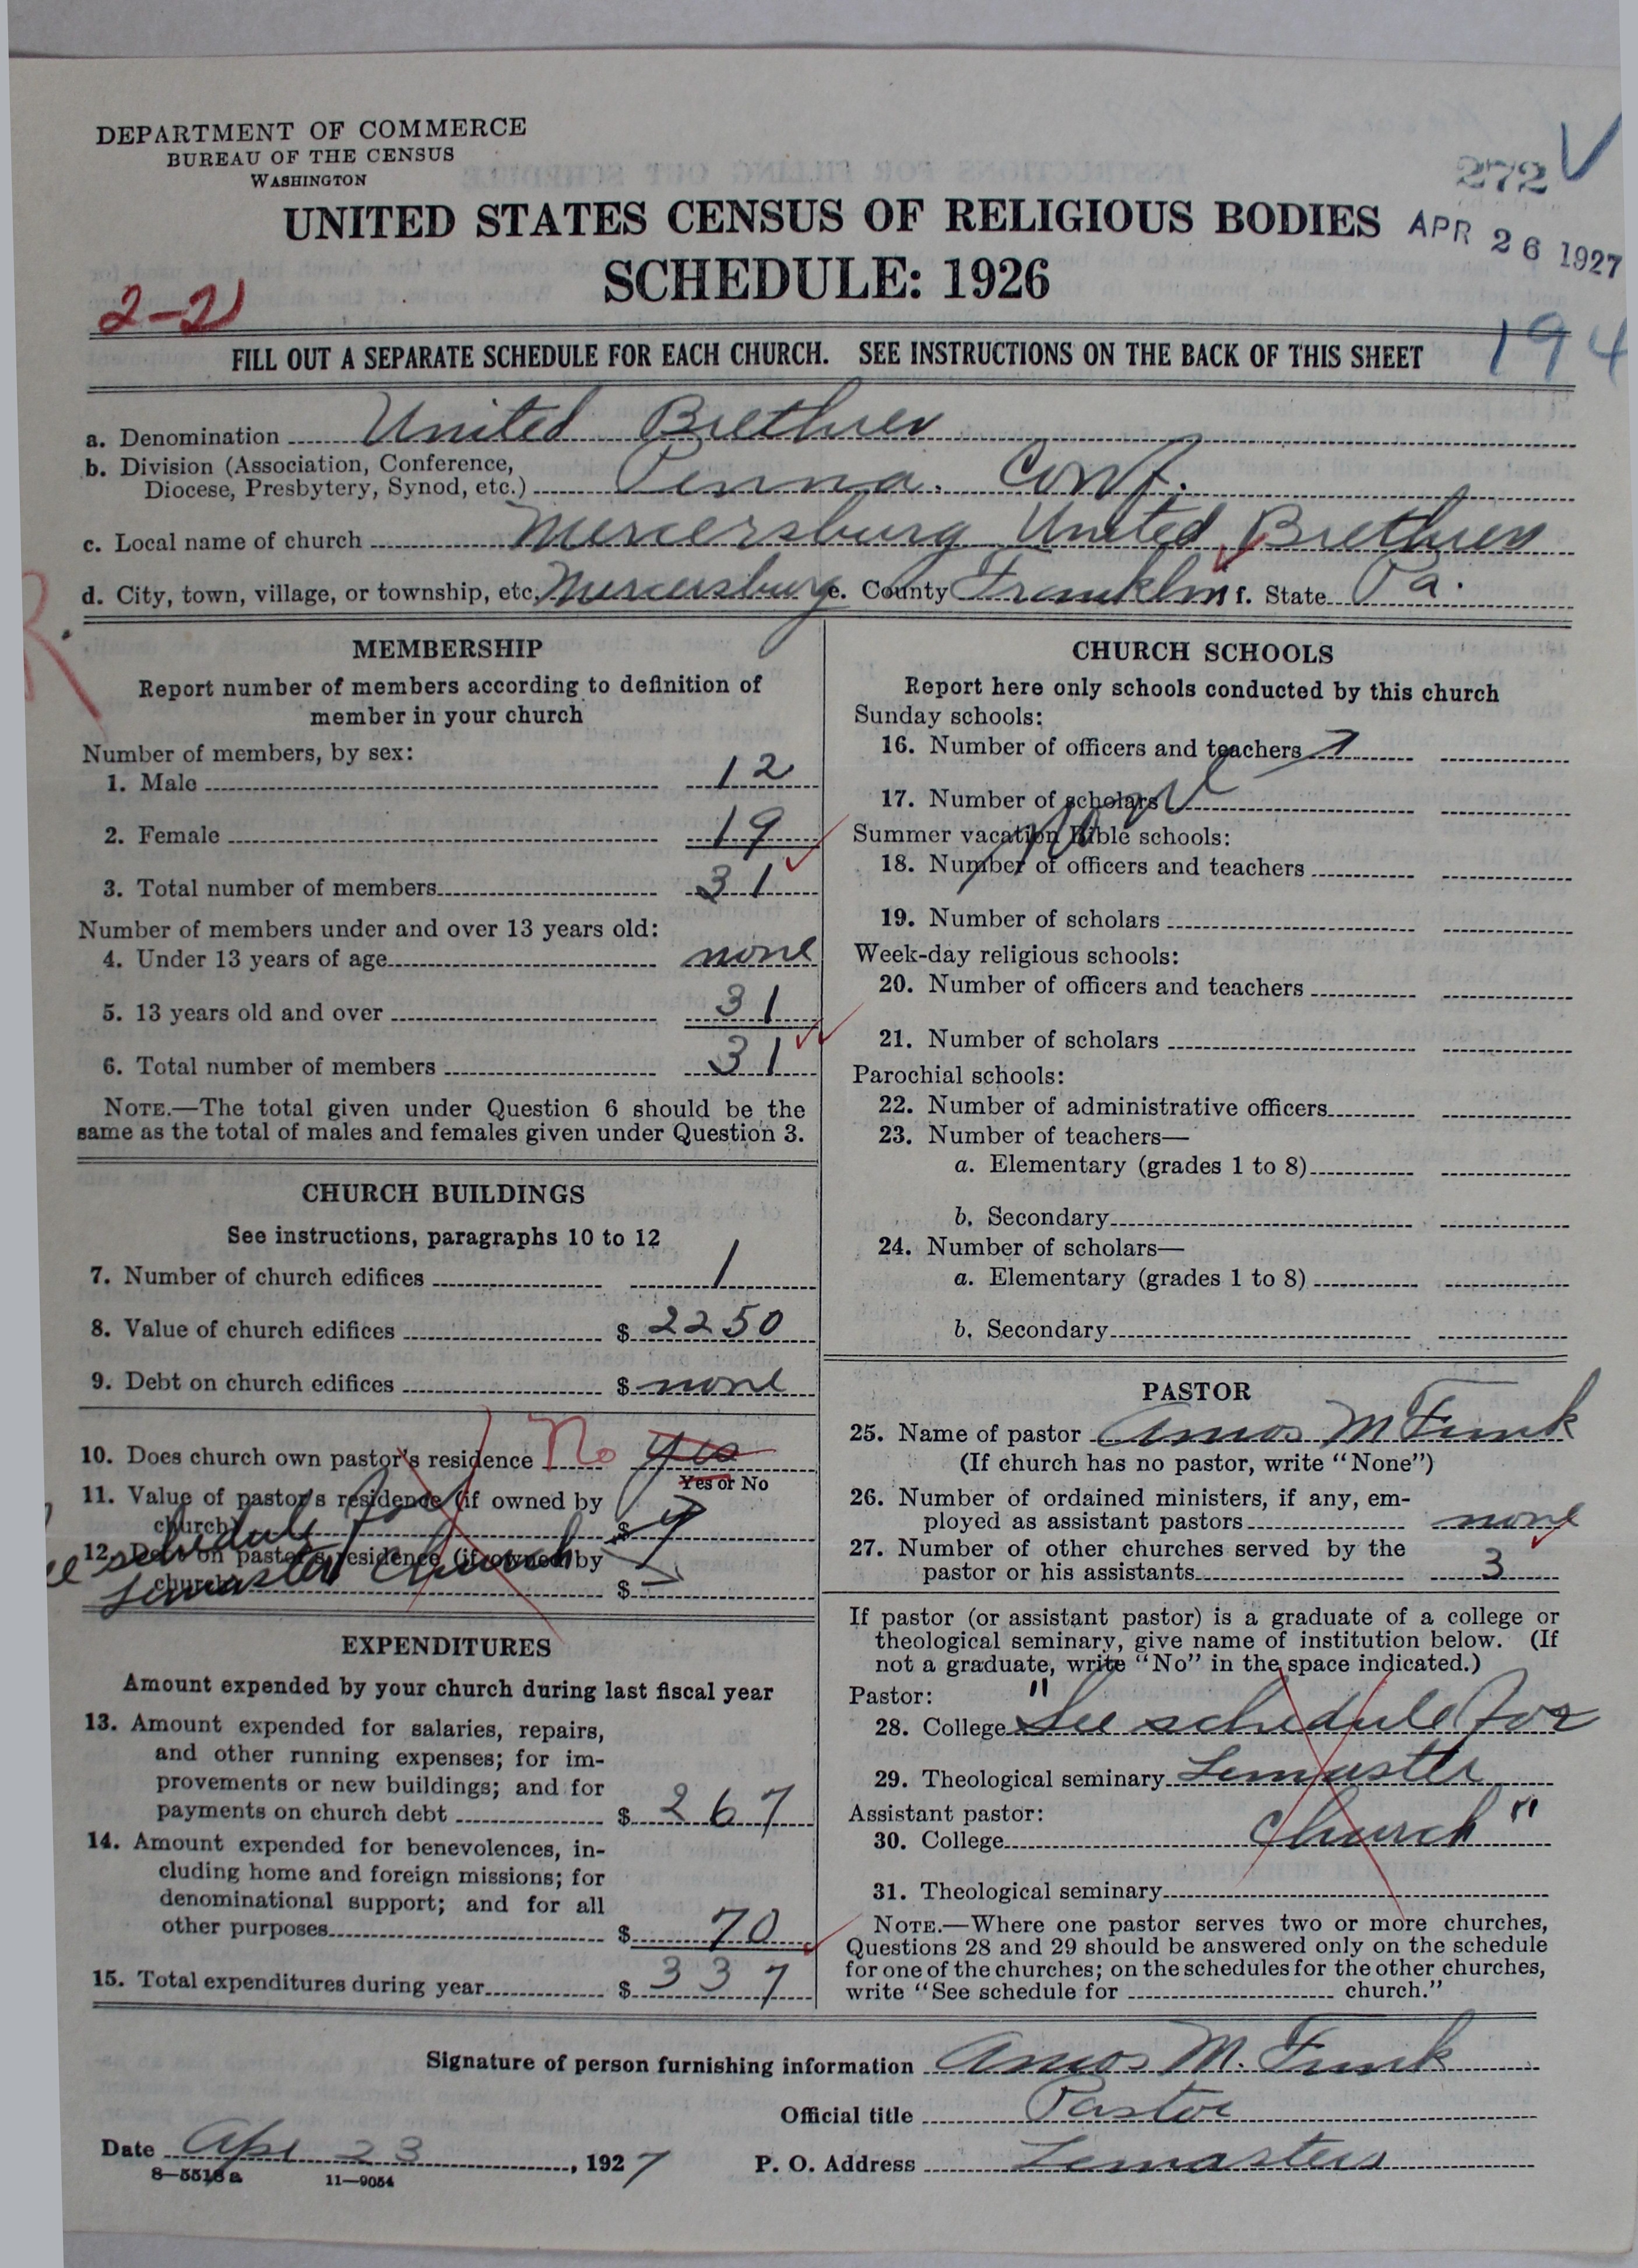 DEPARTMENT OF COMMERCE
BUREAU OF THE CENSUS
WASHINGTON
272 V
UNITED STATES CENSUS OF RELIGIOUS BODIES
APR 26 1927
SCHEDULE: 1926
2-21
194
FILL OUT A SEPARATE SCHEDULE FOR EACH CHURCH. SEE INSTRUCTIONS ON THE BACK OF THIS SHEET
a. Denomination United Brethren
b. Division (Association, Conference,
Diocese, Presbytery, Synod, etc.) Penna. Conf.
c. Local name of church Mercersburg United Brethren
d. City, town, village, or township, etc. Mercersburg e. County Franklin f. State Pa.
R.
MEMBERSHIP
Report number of members according to definition of
member in your church
Number of members, by sex:
1. Male 12
2. Female 19
3. Total number of members 31
Number of members under and over 13 years old:
4. Under 13 years of age none
5. 13 years old and over 31
6. Total number of members 31
NOTE.—The total given under Question 6 should be the
same as the total of males and females given under Question 3.
CHURCH BUILDINGS
See instructions, paragraphs 10 to 12
7. Number of church edifices 1
8. Value of church edifices $ 2250
9. Debt on church edifices $ none
10. Does church own pastor's residence No yes
Yes or No
11. Value of pastor's residence (if owned by
church) $
12. Debt on pastor's residence (if owned by
church) $
schedule for
Lemaster Church
EXPENDITURES
Amount expended by your church during last fiscal year
13. Amount expended for salaries, repairs,
and other running expenses; for im-
provements or new buildings; and for
payments on church debt $ 267
14. Amount expended for benevolences, in-
cluding home and foreign missions; for
denominational support; and for all
other purposes $ 70
15. Total expenditures during year $ 337
CHURCH SCHOOLS
Report here only schools conducted by this church
Sunday schools:
16. Number of officers and teachers
17. Number of scholars
None
Summer vacation Bible schools:
18. Number of officers and teachers
19. Number of scholars
Week-day religious schools:
20. Number of officers and teachers
21. Number of scholars
Parochial schools:
22. Number of administrative officers
23. Number of teachers—
a. Elementary (grades 1 to 8)
b. Secondary
24. Number of scholars—
a. Elementary (grades 1 to 8)
b. Secondary
PASTOR
25. Name of pastor Amos M Funk
(If church has no pastor, write "None")
26. Number of ordained ministers, if any, em-
ployed as assistant pastors none
27. Number of other churches served by the
pastor or his assistants 3
If pastor (or assistant pastor) is a graduate of a college or
theological seminary, give name of institution below. (If
not a graduate, write "No" in the space indicated.)
Pastor:
28. College "See schedule for
29. Theological seminary Lemaster
Assistant pastor:
30. College church"
31. Theological seminary
NOTE.—Where one pastor serves two or more churches,
Questions 28 and 29 should be answered only on the schedule
for one of the churches; on the schedules for the other churches,
write "See schedule for church."
Signature of person furnishing information Amos M. Funk
Official title Pastor
Date Apr 23, 1927
P. O. Address Lemasters
8—5518a 11—9054